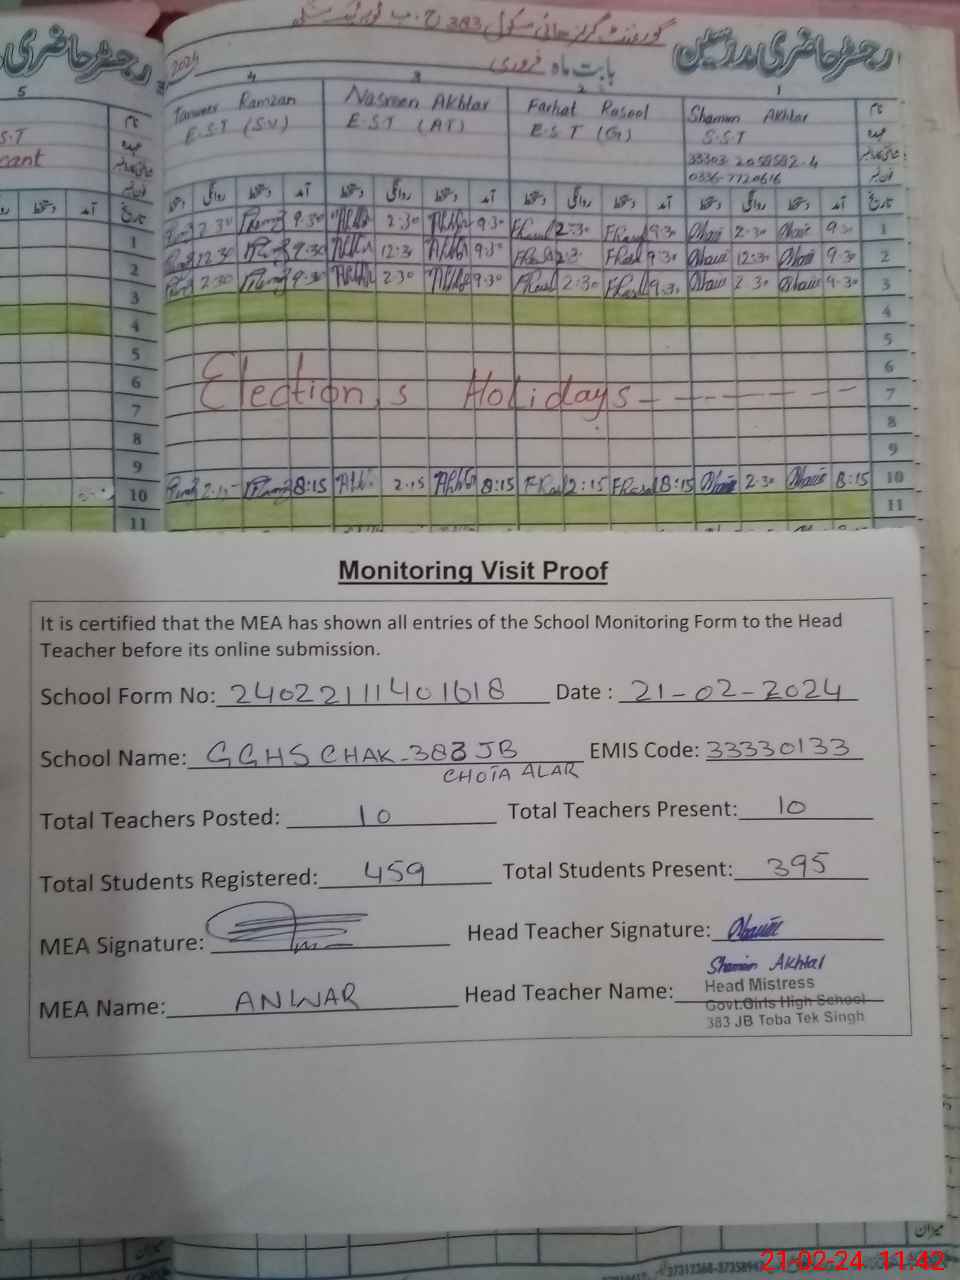 رجسٹر حاضری مدرسین
گورنمنٹ گرلز ہائی سکول 383 ج۔ب
بابت ماہ فروری
2024
5 4 3 2 1
Ramzan Nasreen Akhtar Farhat Rasool Shamim Akhtar نام
S.T E.S.T (S.V) E.S.T (AT) E.S.T (G) S.S.T عہدہ
cant 33303-2058582-4
0336-7720616
دستخط روانگی دستخط آمد دستخط روانگی دستخط آمد دستخط روانگی دستخط آمد دستخط روانگی دستخط آمد تاریخ
2.30 9.30 2.30 9.30 2:30 9.30 2.30 9.30 1
12.30 9.30 12:30 9.30 2.30 9.30 12.30 9.30 2
2.30 9.30 2.30 9.30 2:30 9.30 2.30 9.30 3
4
5
6
Elections Holidays 7
8
9
8:15 2.15 8:15 2:15 8:15 2.30 8:15 10
11
Monitoring Visit Proof
It is certified that the MEA has shown all entries of the School Monitoring Form to the Head
Teacher before its online submission.
School Form No: 24022111401618 Date : 21-02-2024
School Name: GGHS CHAK-383 JB EMIS Code: 33330133
CHOTA ALAR
Total Teachers Posted: 10 Total Teachers Present: 10
Total Students Registered: 459 Total Students Present: 395
MEA Signature: Head Teacher Signature:
MEA Name: ANWAR Head Teacher Name: Shamim Akhtar
Head Mistress
Govt.Girls High School
383 JB Toba Tek Singh
میزان
21-02-24 11:42